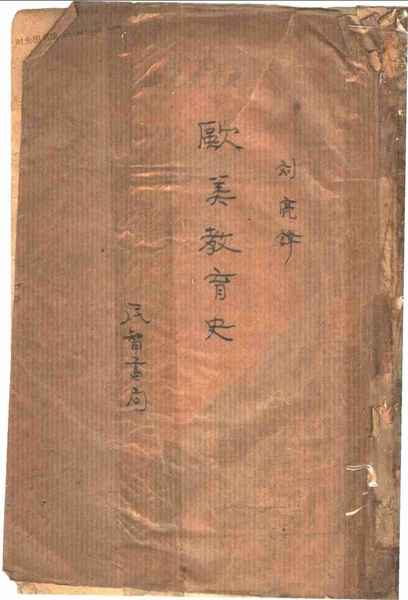 刘亮锋
歐美教育史
民智書局